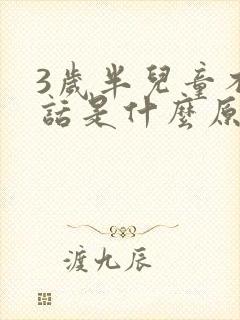 3歲半兒童
話是什麼原
渡九辰